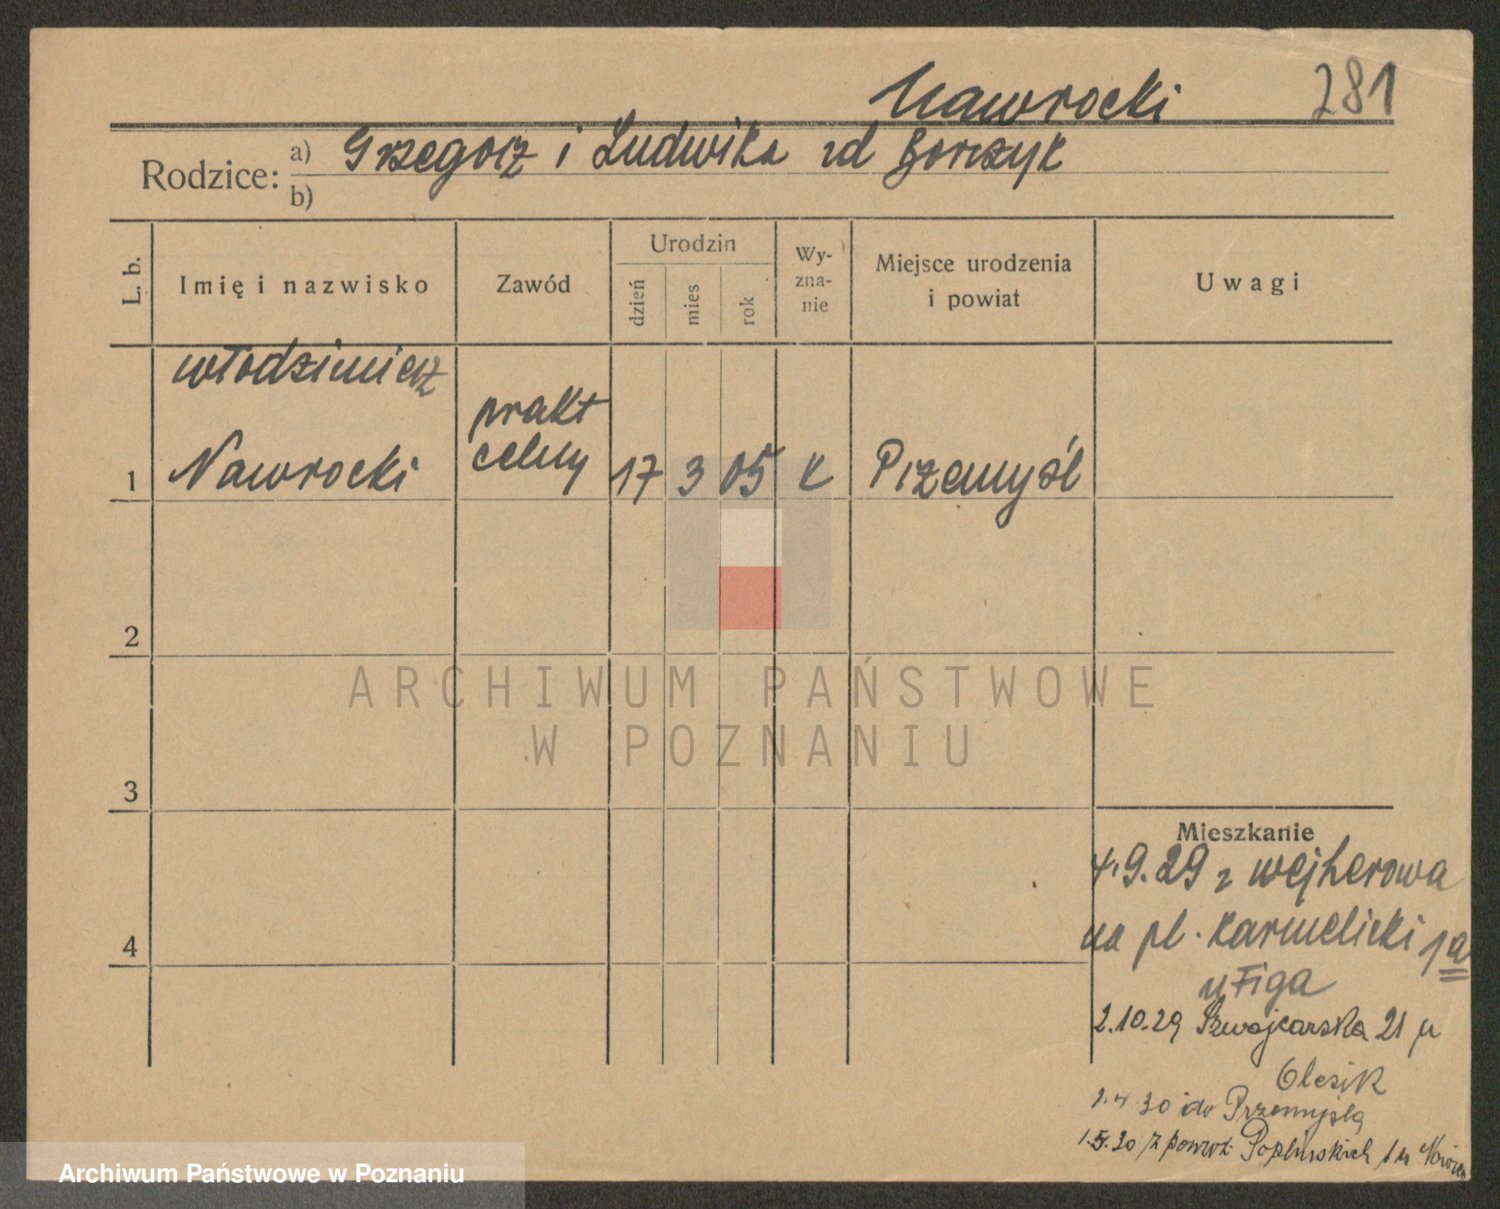 Nawrocki 281
Rodzice: a) Grzegorz i Ludwika zd Borczyk
b)
L. b. Imię i nazwisko Zawód Urodzin dzień mies rok Wyznanie Miejsce urodzenia i powiat Uwagi
Włodzimierz
1 Nawrocki prakt celny 17 3 05 k Przemyśl
2
3
4
ARCHIWUM PAŃSTWOWE
W POZNANIU
Mieszkanie
4.9.29 z Wejherowa
na pl. Karmelicki 1a
u Figa
2.10.29 Szwajcarska 21 u
Olesik
1.4 30 do Przemyśla
1.5.30 z powrot. Poplińskich 1 u
Archiwum Państwowe w Poznaniu